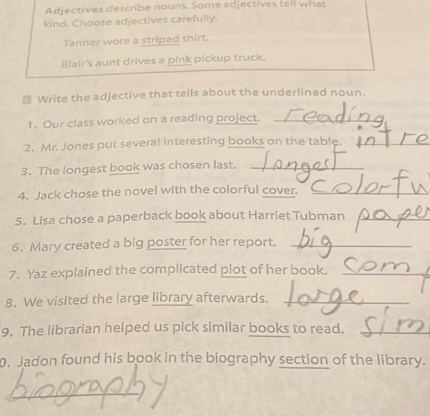 Adjectives describe nouns. Some adjectives tell what
kind. Choose adjectives carefully.
Tanner wore a striped shirt.
Blair's aunt drives a pink pickup truck.
Write the adjective that tells about the underlined noun.
1. Our class worked on a reading project. reading
2. Mr. Jones put several interesting books on the table. intre
3. The longest book was chosen last. longest
4. Jack chose the novel with the colorful cover. colorfu
5. Lisa chose a paperback book about Harriet Tubman pape
6. Mary created a big poster for her report. big
7. Yaz explained the complicated plot of her book. comp
8. We visited the large library afterwards. large
9. The librarian helped us pick similar books to read. sim
0. Jadon found his book in the biography section of the library.
biography